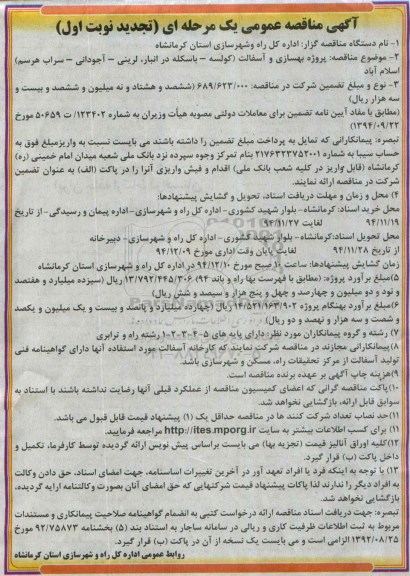 آگهی مناقصه عمومی یک مرحله ای (تجدید نوبت اول)
۱- نام دستگاه مناقصه گزار: اداره کل راه وشهرسازی استان کرمانشاه
۲- موضوع مناقصه: پروژه بهسازی و آسفالت (کولسه – باسکله در انبار، لرینی – آجودانی – سراب هرسم)
اسلام آباد
۳- نوع و مبلغ تضمین شرکت در مناقصه: ۶۸۹/۶۲۳/۰۰۰ (ششصد و هشتاد و نه میلیون و ششصد و بیست و
سه هزار ریال)
(مطابق با مفاد آیین نامه تضمین برای معاملات دولتی مصوبه هیأت وزیران به شماره ۱۲۳۴۰۲/ ت ۵۰۶۵۹ مورخ
۱۳۹۴/۰۹/۲۲)
تبصره: پیمانکارانی که تمایل به پرداخت مبلغ تضمین را داشته باشند می بایست نسبت به واریزمبلغ فوق به
حساب سیبا به شماره ۲۱۷۶۴۳۳۷۵۲۰۰۱ بنام تمرکز وجوه سپرده نزد بانک ملی شعبه میدان امام خمینی (ره)
کرمانشاه (قابل واریز در کلیه شعب بانک ملی) اقدام و فیش واریزی آنرا را در پاکت (الف) به عنوان تضمین
شرکت در مناقصه ارائه نمایند.
۴) محل و زمان و مهلت دریافت اسناد، تحویل و گشایش پیشنهادها:
محل خرید اسناد: کرمانشاه- بلوار شهید کشوری – اداره کل راه و شهرسازی- اداره پیمان و رسیدگی- از تاریخ
۹۴/۱۱/۱۹ لغایت ۹۴/۱۱/۲۷
محل تحویل اسناد:کرمانشاه- بلوار شهید کشوری- اداره کل راه و شهرسازی- دبیرخانه
از تاریخ ۹۴/۱۱/۲۸ لغایت پایان وقت اداری مورخ ۹۴/۱۲/۰۹
زمان گشایش پیشنهادها: ساعت ۱۰ صبح مورخ ۹۴/۱۲/۱۰ در اداره کل راه و شهرسازی استان کرمانشاه
۵)مبلغ برآورد پروژه: (مطابق با فهرست بها راه و باند ۹۴) ۱۳/۷۹۲/۴۴۵/۳۰۶ ریال (سیزده میلیارد و هفتصد
و نود و دو میلیون و چهارصد و چهل و پنج هزار و سیصد و شش ریال)
۶)مبلغ بر آورد بهنگام پروژه ۱۴/۵۲۱/۱۶۳/۹۰۲ ریال (چهارده میلیارد و پانصد و بیست و یک میلیون و یکصد
و شصت و سه هزار و نهصد و دو ریال)
۷) رشته و گروه پیمانکاران مورد نظر: دارای پایه های ۵-۴-۳-۲-۱ رشته راه و ترابری
۸)پیمانکارانی مجازند در مناقصه شرکت نمایند که کارخانه آسفالت مورد استفاده آنها دارای گواهینامه فنی
تولید آسفالت از مرکز تحقیقات راه، مسکن و شهرسازی باشد.
۹)هزینه چاپ آگهی بر عهده برنده مناقصه است.
۱۰)پاکت مناقصه گرانی که اعضای کمیسیون مناقصه از عملکرد قبلی آنها رضایت نداشته باشند با استناد به
سوابق قابل ارائه، بازگشایی نخواهد شد.
۱۱)حد نصاب تعداد شرکت کنند ها در مناقصه حداقل یک (۱) پیشنهاد قیمت قابل قبول می باشد.
۱۱) برای کسب اطلاعات بیشتر به سایت http://ites.mporg.ir مراجعه فرمایید.
۱۲)کلیه اوراق آنالیز قیمت (تجزیه بها) می بایست براساس پیش نویس ارائه گردیده توسط کارفرما، تکمیل و
داخل پاکت (ب) قرار گیرد.
۱۳) با توجه به اینکه فرد یا افراد تعهد آور در آخرین تغییرات اساسنامه، جهت امضای اسناد، حق دادن وکالت
به افراد دیگر را ندارند لذا پاکات پیشنهاد قیمت شرکتهایی که حق امضای آنان بصورت وکالتنامه ارایه گردیده،
بازگشایی نخواهد شد.
تبصره: جهت دریافت اسناد مناقصه ارائه درخواست کتبی به انضمام گواهینامه صلاحیت پیمانکاری و مستندات
مربوط به ثبت اطلاعات ظرفیت کاری و ریالی در سامانه ساجار به استناد بند (۵) بخشنامه ۹۲/۷۵۸۷۳ مورخ
۱۳۹۲/۰۸/۲۵ الزامی است و می بایست یک نسخه از آن در پاکت (ب) قرار گیرد.
روابط عمومی اداره کل راه و شهرسازی استان کرمانشاه